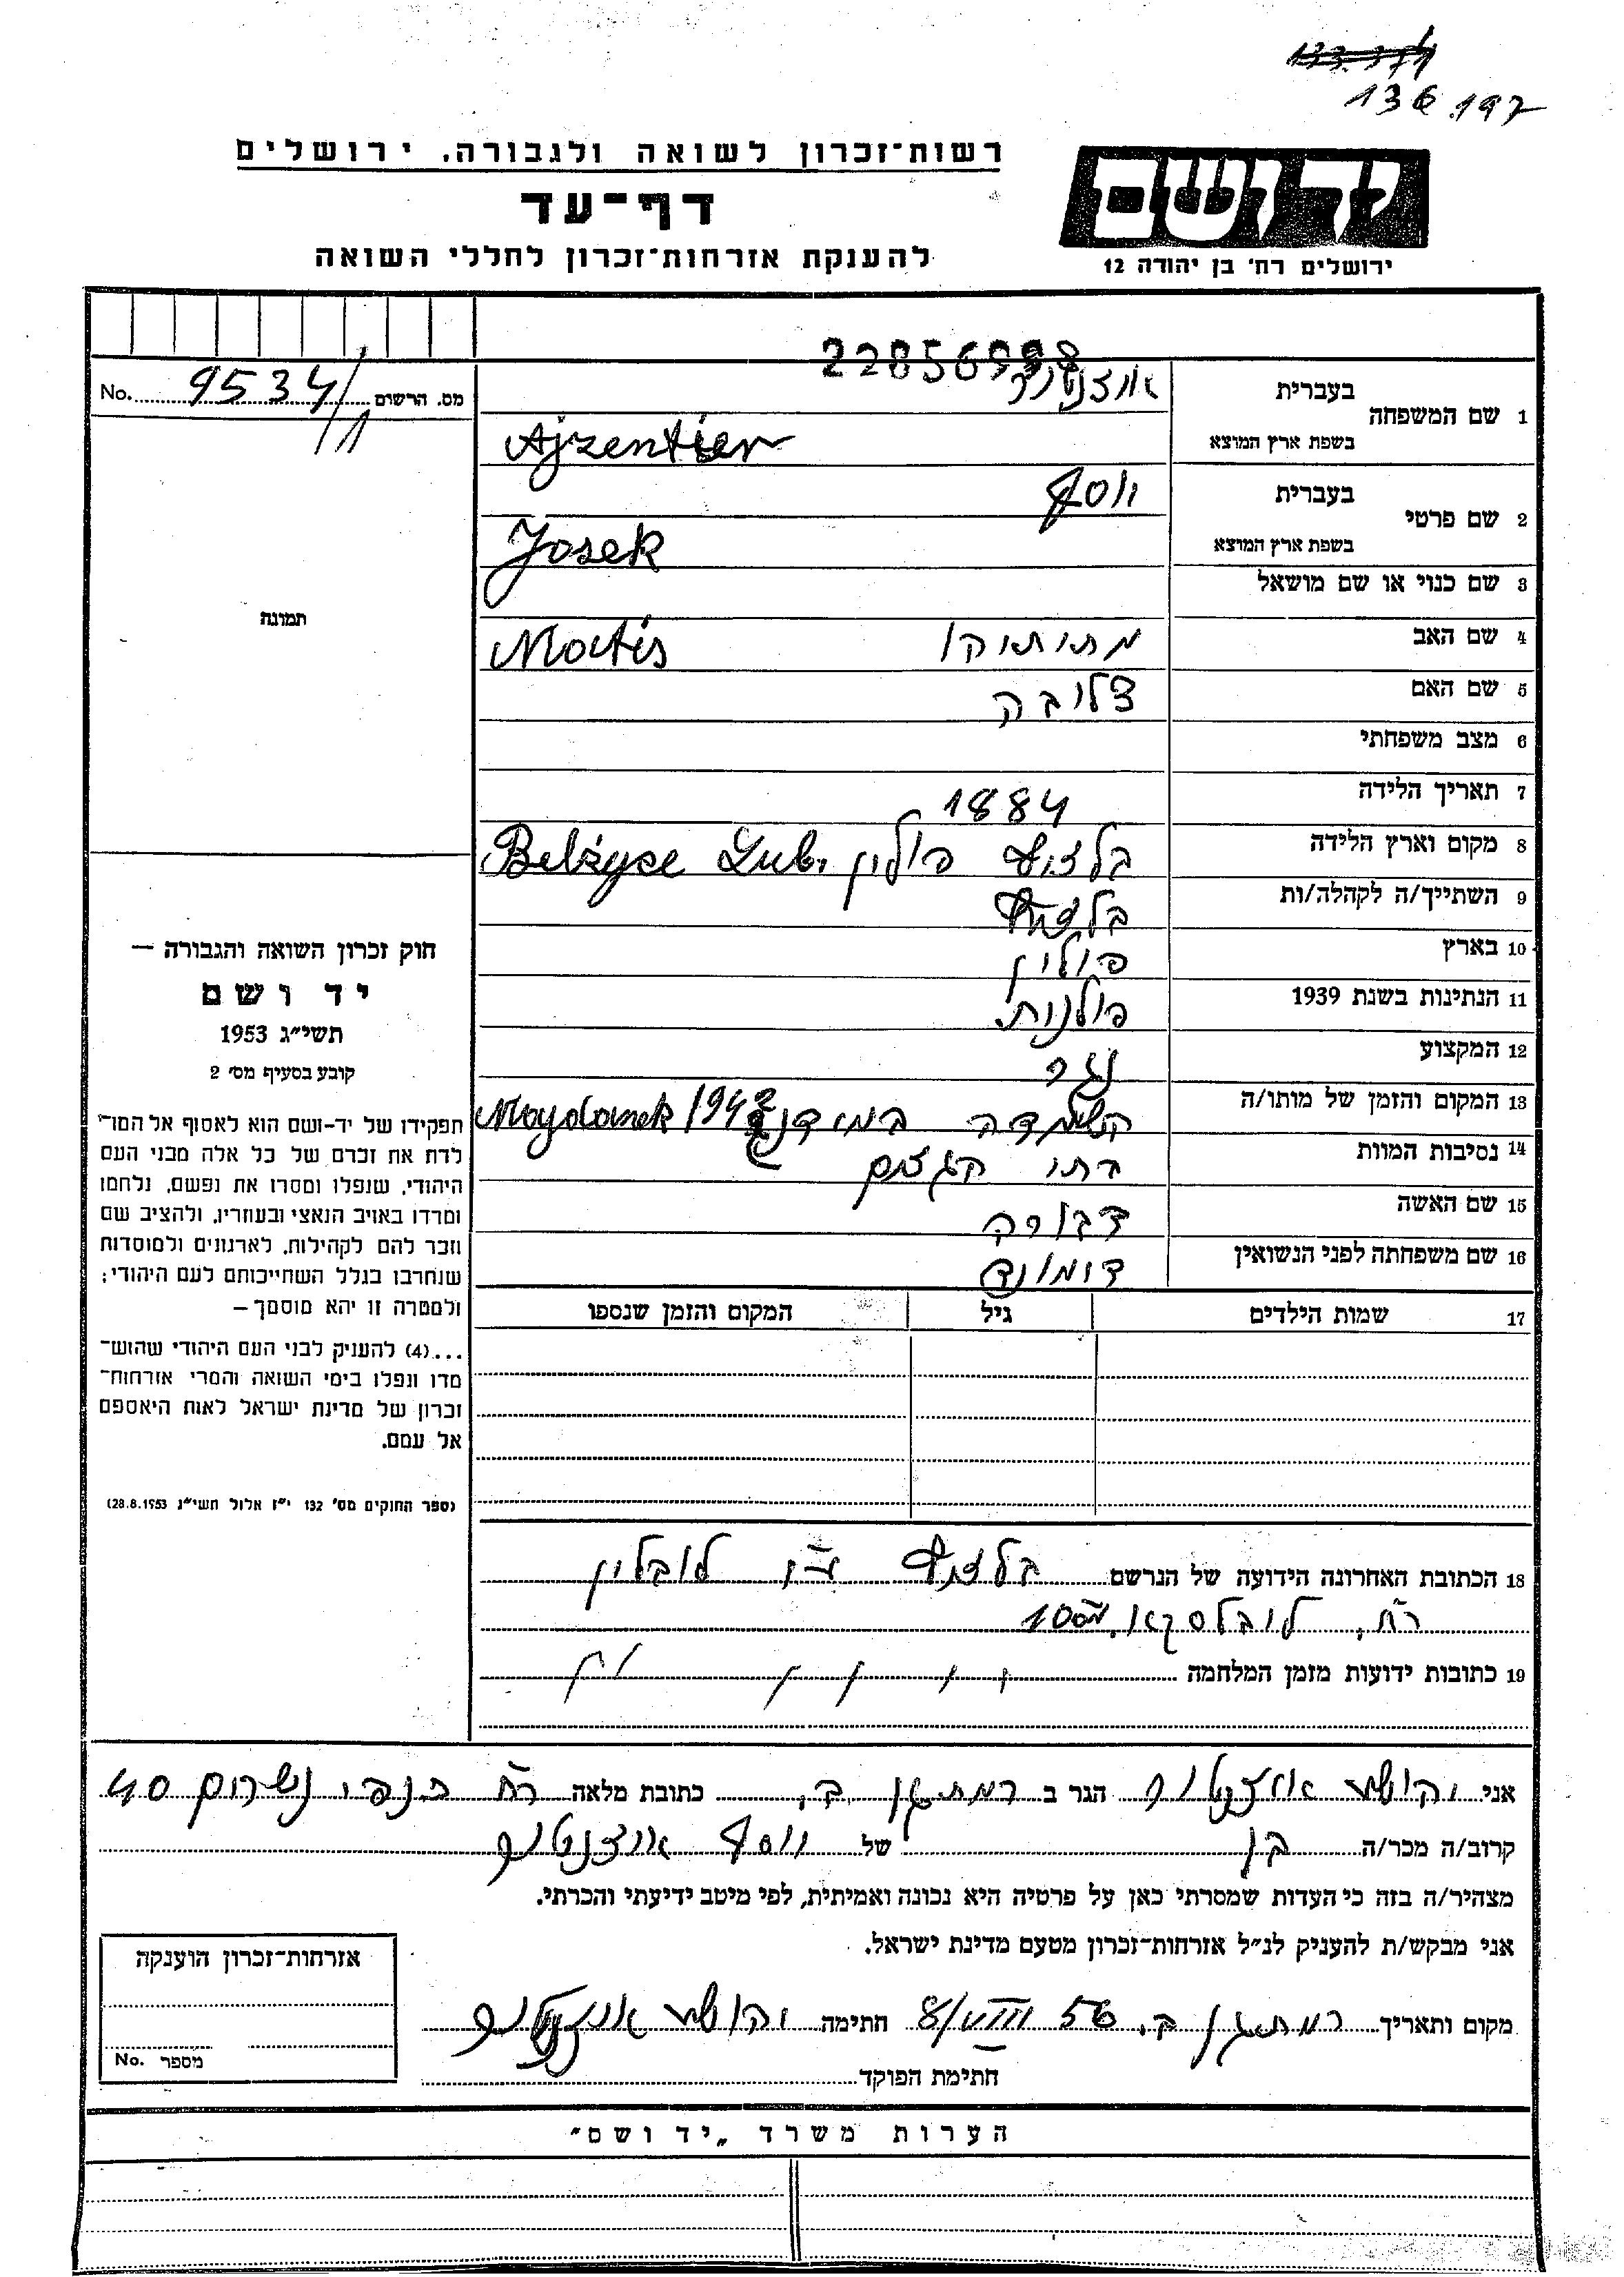 136.197
רשות־זכרון לשואה ולגבורה, ירושלים
דף־עד
להענקת אזרחות־זכרון לחללי השואה
יד ושם
ירושלים רח' בן יהודה 12
22856998
No. 9534/1 מס. הרשום
1 שם המשפחה
בעברית
בשפת ארץ המוצא
Ajzentier
2 שם פרטי
בעברית יוסף
בשפת ארץ המוצא Josek
3 שם כנוי או שם מושאל
4 שם האב Matis
5 שם האם צלובה
6 מצב משפחתי
7 תאריך הלידה 1884
8 מקום וארץ הלידה פולין Bełżyce Lub.
9 השתייך/ה לקהלה/ות
10 בארץ פולין
11 הנתינות בשנת 1939 פולנית
12 המקצוע נגר
13 המקום והזמן של מותו/ה Maydanek
14 נסיבות המוות
15 שם האשה דבורה
16 שם משפחתה לפני הנשואין
17 שמות הילדים גיל המקום והזמן שנספו
18 הכתובת האחרונה הידועה של הנרשם לובלין
19 כתובות ידועות מזמן המלחמה
תמונה
חוק זכרון השואה והגבורה —
יד ושם
תשי״ג 1953
קובע בסעיף מס׳ 2
תפקידו של יד-ושם הוא לאסוף אל המו־
לדת את זכרם של כל אלה מבני העם
היהודי, שנפלו ומסרו את נפשם, נלחמו
ומרדו באויב הנאצי ובעוזריו, ולהציב שם
וזכר להם לקהילות, לארגונים ולמוסדות
שנחרבו בגלל השתייכותם לעם היהודי;
ולמטרה זו יהא מוסמך —
...(4) להעניק לבני העם היהודי שהוש־
מדו ונפלו בימי השואה והמרי אזרחות־
זכרון של מדינת ישראל לאות היאספם
אל עמם.
(ספר החוקים מס׳ 132 י״ז אלול תשי״ג 28.8.1953)
אני הגר ב רמת גן כתובת מלאה רח כנפי נשרים 40
קרוב/ה מכר/ה בן של יוסף
מצהיר/ה בזה כי העדות שמסרתי כאן על פרטיה היא נכונה ואמיתית, לפי מיטב ידיעתי והכרתי.
אני מבקש/ת להעניק לנ״ל אזרחות־זכרון מטעם מדינת ישראל.
מקום ותאריך רמת גן 8/VIII 56 חתימה
חתימת הפוקד
אזרחות־זכרון הוענקה
No. מספר
הערות משרד „יד ושם״